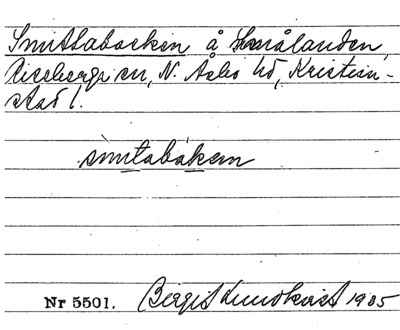 Smittabacken å Smålanden,
Riseberga sn, N. Åsbo hd, Kristian-
stad l.
smitabakan
Nr 5501. Birgit Lundkvist 1935